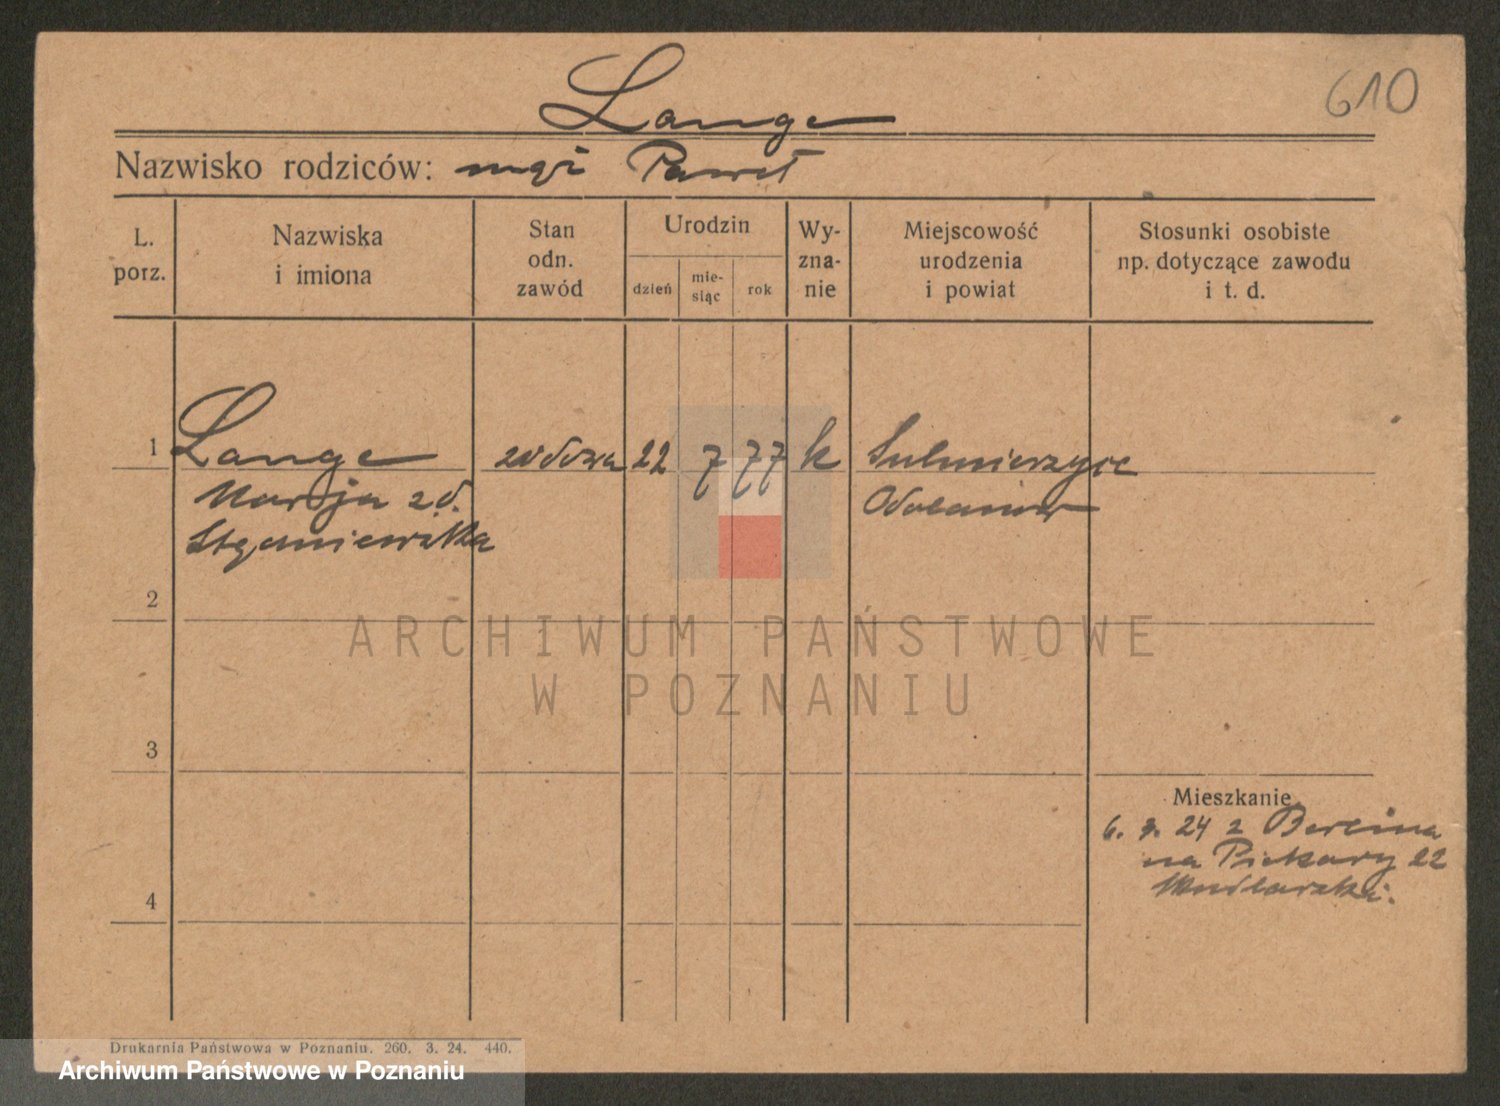 610
Lange
Nazwisko rodziców: mąż Paweł
L. porz.
Nazwiska i imiona
Stan odn. zawód
Urodzin
dzień
mie-siąc
rok
Wy-zna-nie
Miejscowość urodzenia i powiat
Stosunki osobiste np. dotyczące zawodu i t. d.
1 Lange wdowa 22 7 77 k Sulmierzyce
Marja z d. Odolanów
2
3
4
Mieszkanie
6. 3. 24 z Berlina
na Piekary 22
ARCHIWUM PAŃSTWOWE
W POZNANIU
Drukarnia Państwowa w Poznaniu. 260. 3. 24. 440.
Archiwum Państwowe w Poznaniu